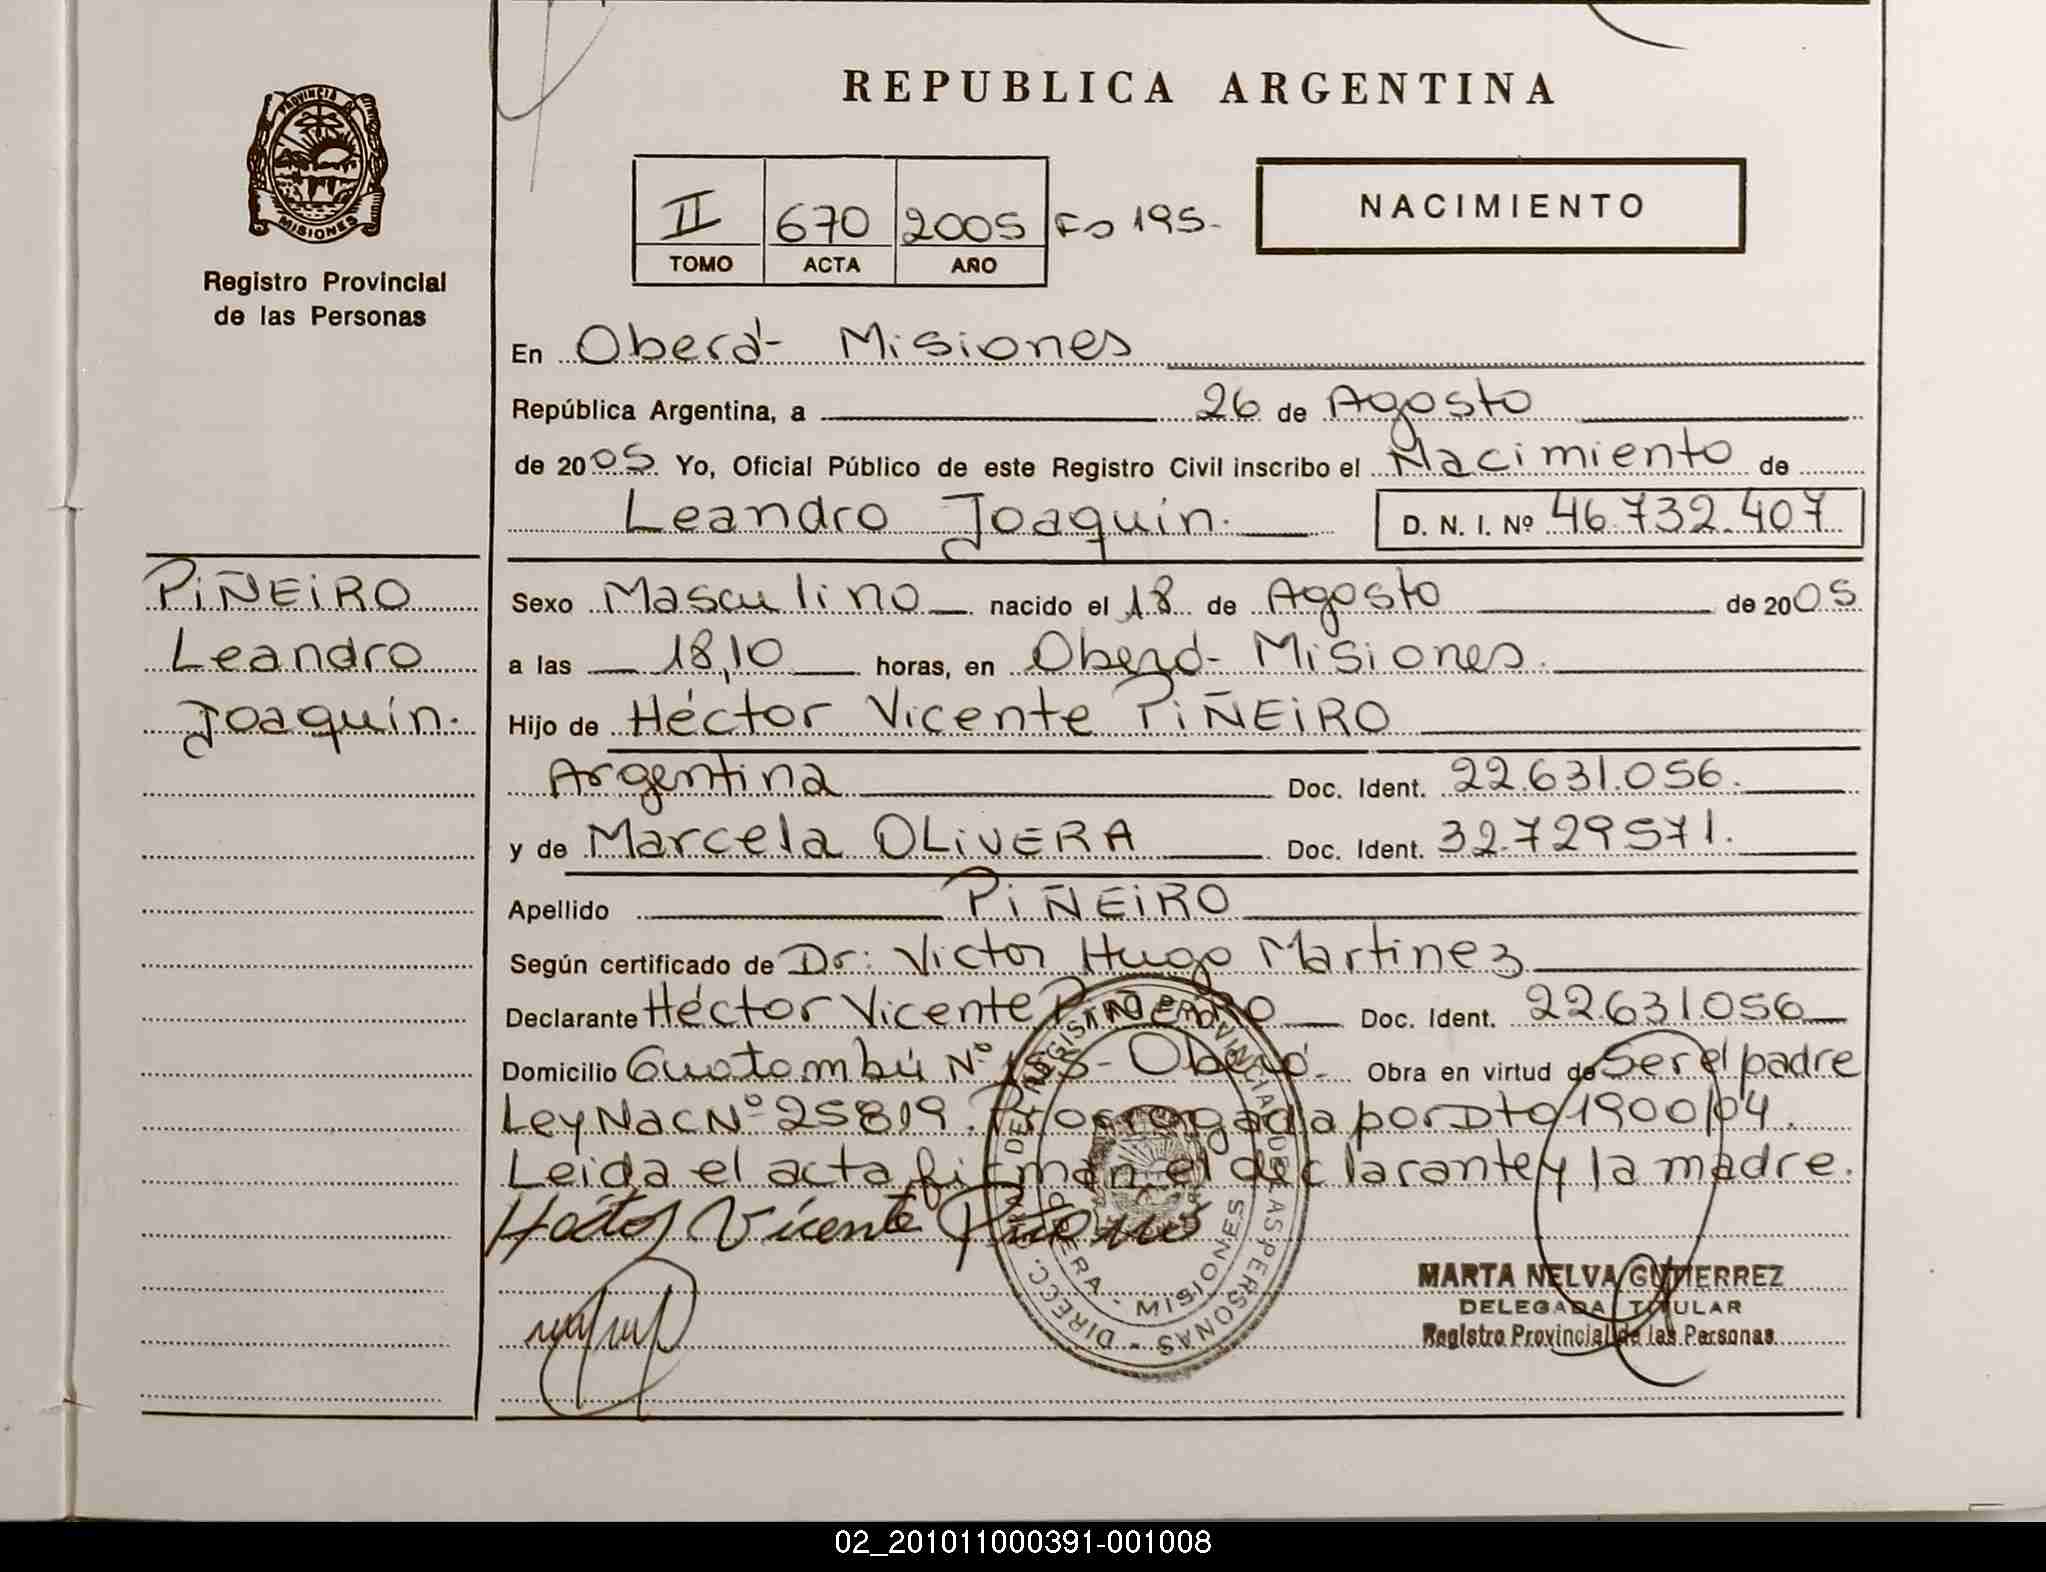 REPUBLICA ARGENTINA
PROVINCIA DE
MISIONES
Registro Provincial
de las Personas
II 670 2005 Fo 195.
TOMO ACTA AÑO
NACIMIENTO
En Oberá - Misiones
República Argentina, a 26 de Agosto
de 2005 Yo, Oficial Público de este Registro Civil inscribo el Nacimiento de
Leandro Joaquín. D. N. I. Nº 46.732.407
PIÑEIRO
Leandro
Joaquín.
Sexo Masculino nacido el 18 de Agosto de 2005
a las 18,10 horas, en Oberá - Misiones.
Hijo de Héctor Vicente PIÑEIRO
Argentina Doc. Ident. 22.631.056.
y de Marcela OLIVERA Doc. Ident. 32.729571.
Apellido PIÑEIRO
Según certificado de Dr: Victor Hugo Martinez
Declarante Héctor Vicente PIÑEIRO Doc. Ident. 22631056
Domicilio Guatambú Nº 155 - Oberá. Obra en virtud de Ser el padre
Ley Nac Nº 25819. Prorrogada por Dto 1900/04.
Leida el acta firman el declarante y la madre.
Héctor Vicente
DIRECC. DE REGISTRO PROVINCIAL DE LAS PERSONAS
MISIONES
MARTA NELVA GUTIERREZ
DELEGADA TITULAR
Registro Provincial de las Personas
02_201011000391-001008